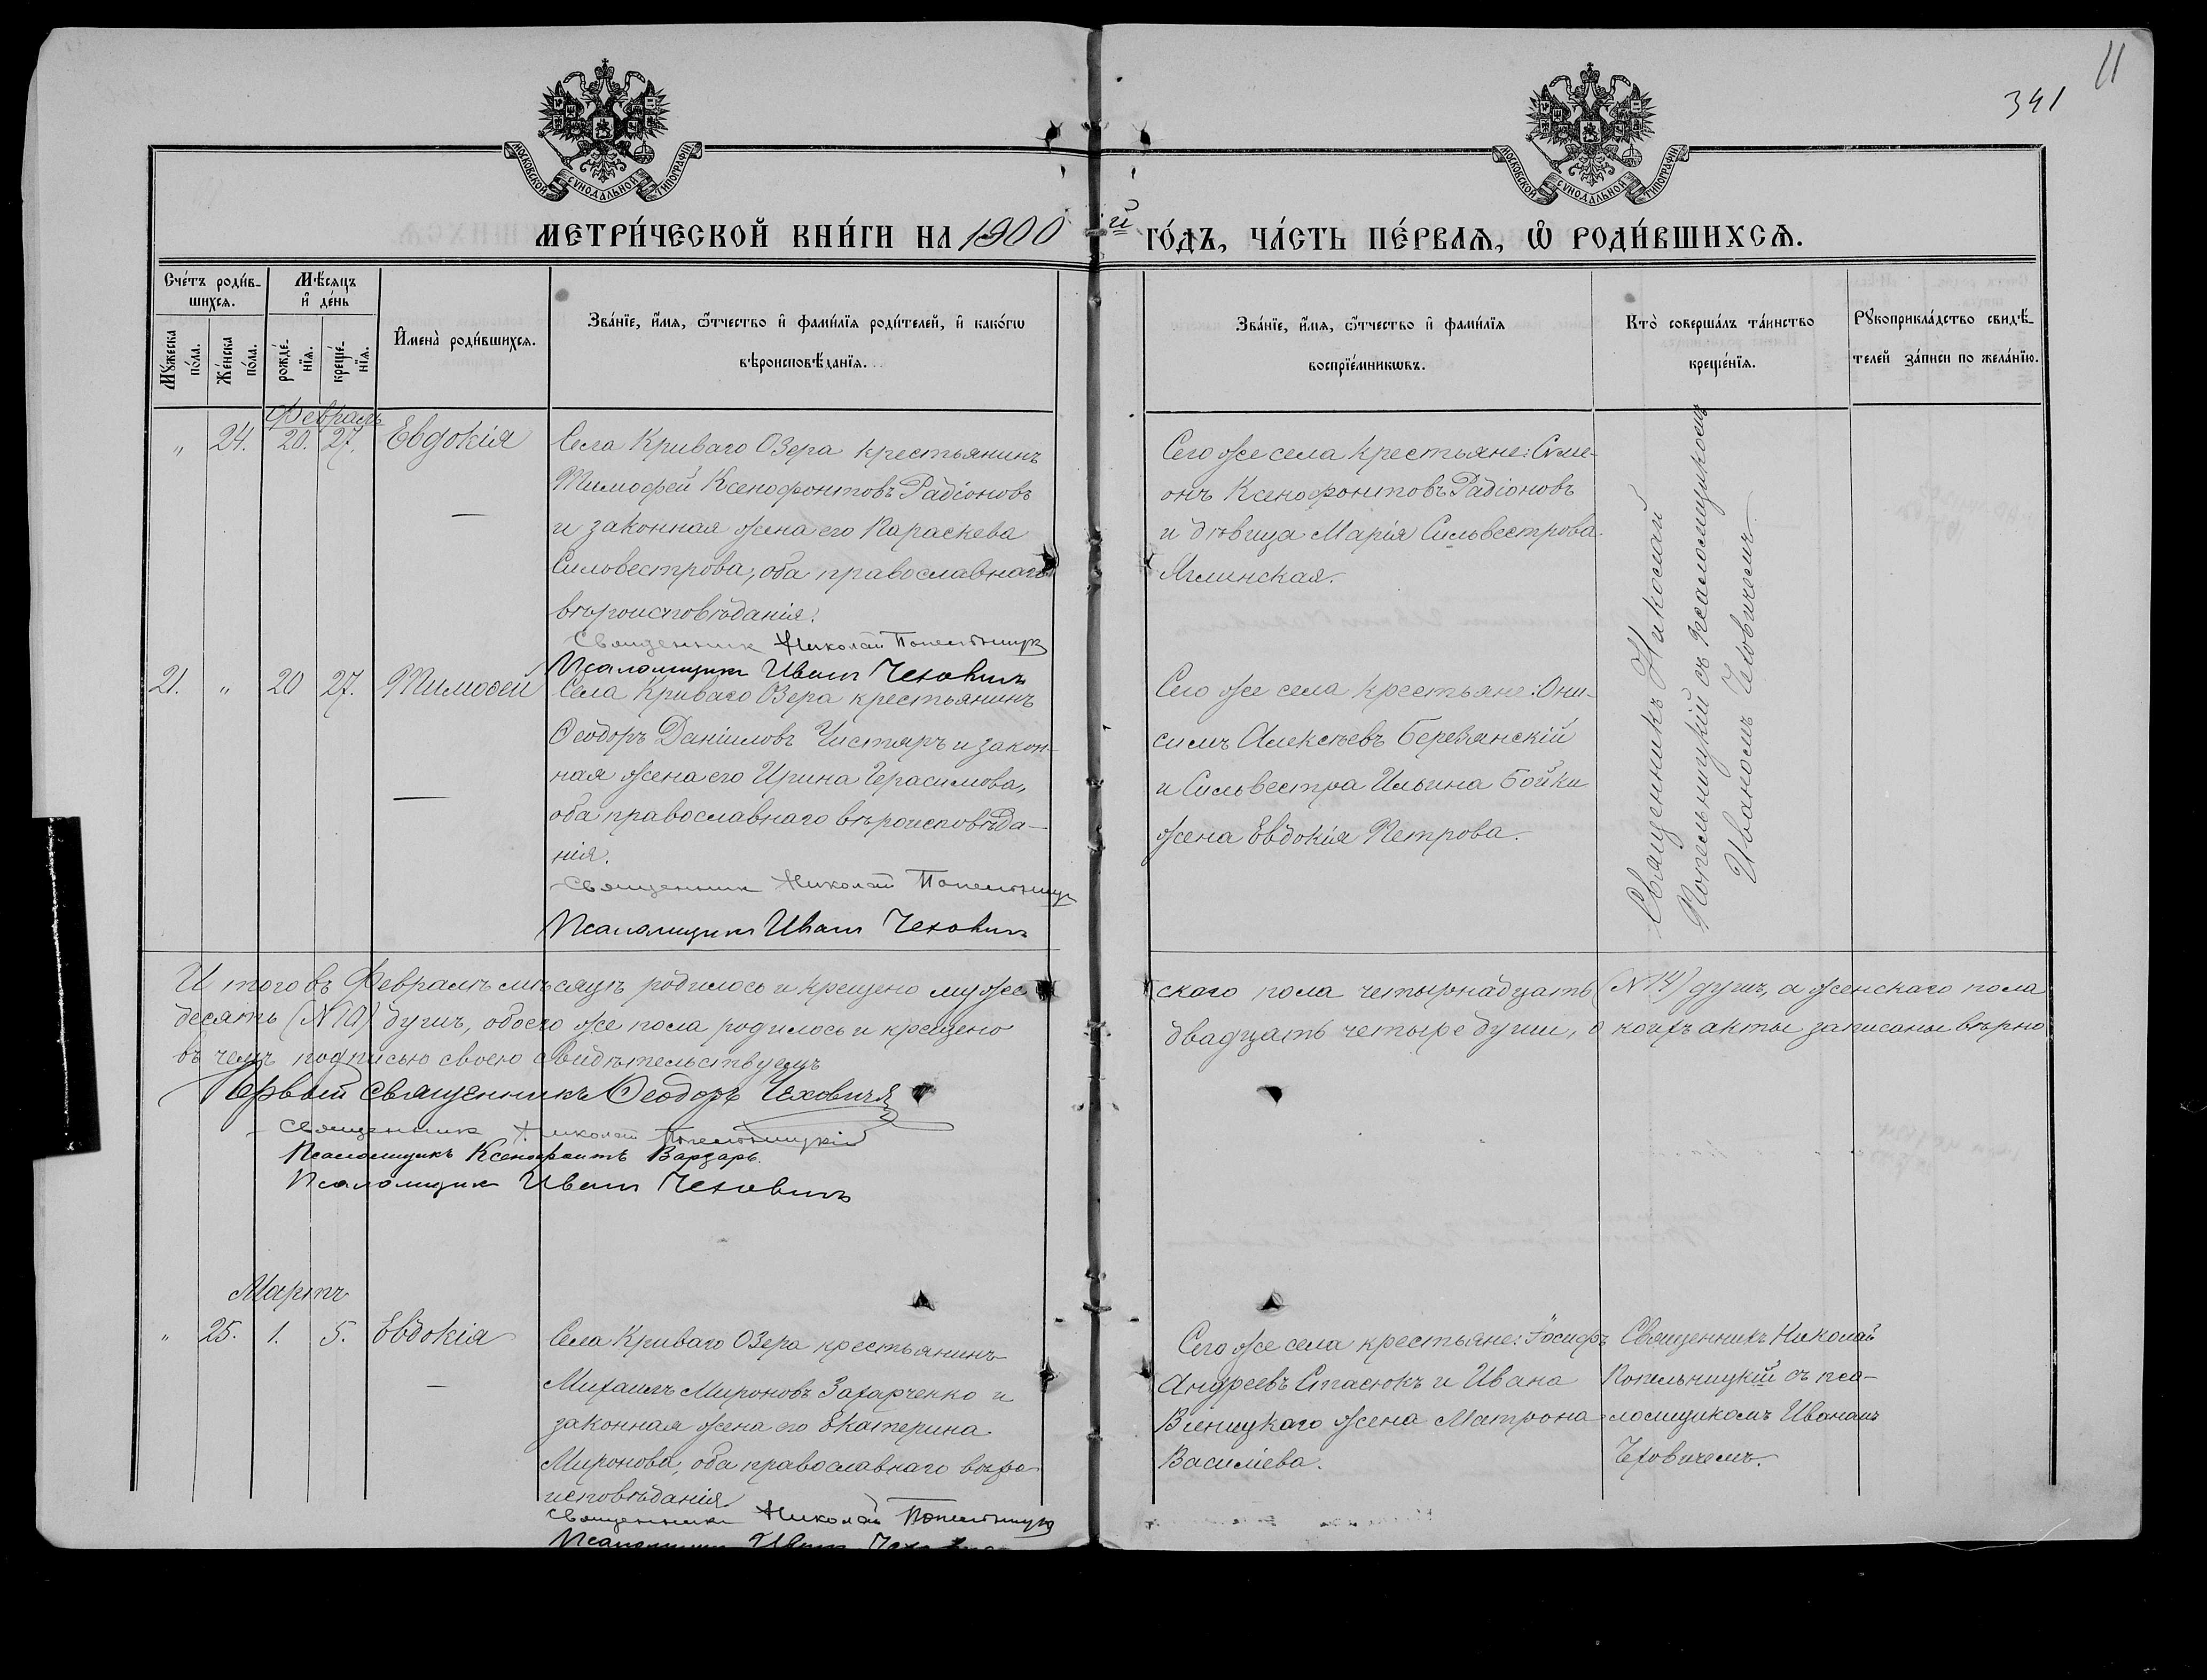 11
341
МОСКОВСКОЙ СѴНОДАЛЬНОЙ ТИПОГРАФІИ
МОСКОВСКОЙ СѴНОДАЛЬНОЙ ТИПОГРАФІИ
МЕТРИ́ЧЕСКОЙ КНИ́ГИ НА 1900 й ГО́ДЪ, ЧА́СТЬ ПЕ́РВАѦ, Ѡ҆ РОДИ́ВШИХСѦ.
Счѐтъ роди́в-
шихсѧ.
Мꙋжеска
по́ла.
Же́нска
по́ла.
Мѣ́сѧцъ
и҆ де́нь
рожде́-
нїѧ.
креще́-
нїѧ.
И҆мена̀ роди́вшихсѧ.
Зва́нїе, и҆́мѧ, ѻ҆́тчество и҆ фами́лїѧ роди́телей, и҆ како́гѡ
вѣроисповѣ́данїѧ.
Зва́нїе, и҆́мѧ, ѻ҆́тчество и҆ фами́лїѧ
воспрїе́мникѡвъ.
Кто̀ соверша́лъ та́инство
креще́нїѧ.
Рꙋкоприкла́дство свидѣ́-
телей за́писи по жела́нїю.
Февраль
„ 24. 20. 27. Евдокія
Села Криваго Озера крестьянинъ
Тимофей Ксенофонтовъ Радіоновъ
и законная жена его Параскева
Сильвестрова, оба православнаго
вѣроисповѣданія.
Священник Николай Попельницк
Псаломщик Иван Чехович
Сего же села крестьяне: Симе-
онъ Ксенофонтовъ Радіоновъ
и дѣвица Марія Сильвестрова
Яглинская.
Священникъ Николай
Попельницкій съ псаломщикомъ
Иваномъ Чеховичемъ
21. „ 20 27. Тимофей
Села Криваго Озера крестьянинъ
Ѳеодоръ Даніиловъ Чистяръ и закон-
ная жена его Ирина Герасимова,
оба православнаго вѣроисповѣда-
нія.
Священник Николай Попельницк
Псаломщик Иван Чехович
Сего же села крестьяне: Они-
симъ Алексѣевъ Березянскій
и Сильвестра Ильина Бойки
жена Евдокія Петрова.
И того въ Февралѣ мѣсяцѣ родилось и крещено мужескаго пола четырнадцать (№ 14) душъ, а женскаго пола
десять (№ 10) душъ, обоего же пола родилось и крещено двадцать четыре души, о коихъ акты записаны вѣрно
въ чемъ подписью своею свидѣтельствуемъ
Первый священникъ Ѳеодоръ Чеховичъ
Священник Николай Попельницкій
Псаломщикъ Ксенофонтъ Варзарь.
Псаломщик Иван Чехович
Мартъ
„ 25. 1. 5. Евдокія
Села Криваго Озера крестьянинъ
Михаилъ Мироновъ Захарченко и
законная жена его Екатерина
Миронова, оба православнаго вѣро-
исповѣданія.
Священник Николай Попельницк
Псаломщик Иван Чехович
Сего же села крестьяне: Іосифъ
Андреевъ Стасюкъ и Ивана
жена Матрона
Василіева.
Священникъ Николай
Попельницкій съ пса-
ломщикомъ Иваномъ
Чеховичемъ.